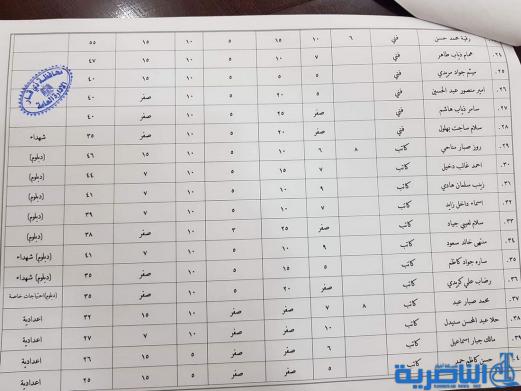 رقية محمد حسن فني ٦ ١٠ ١٥ ٥ ١٠ ١٥ ٥٥
٢٤. همام ذياب طاهر فني ٧ ١٠ ٥ ١٠ ١٥ ٤٧
٢٥. ميثم جواد مريدي فني ٥ ٥ ٥ ١٠ ١٥ ٤٠
٢٦. امير منصور عبد الحسين فني ٥ ٢٠ ٥ ١٠ صفر ٤٠
٢٧. سامر ذياب هاشم فني صفر ٢٥ ٥ ١٠ صفر ٤٠
سلام ساجت بهلول فني صفر ٢٠ ٥ ١٠ صفر ٣٥ شهداء
٢٩. روز صبار مناحي كاتب ٨ ٦ ١٠ ٥ ١٠ ١٥ ٤٦ (دبلوم)
٣٠. احمد غالب دخيل كاتب ٧ ١٥ ٥ ١٠ ٧ ٤٤ (دبلوم)
٣١. زينب سلمان هادي كاتب ٩ ١٠ ٥ ١٠ ٧ ٤١ (دبلوم)
٣٢. اسماء داخل زايد كاتب ٧ ١٠ ٥ ١٠ ٧ ٣٩ (دبلوم)
٣٣. سلام لعيبي جياد كاتب صفر ٢٥ ٣ ١٠ صفر ٣٨ (دبلوم)
٣٤. منتهى خالد سعود كاتب ٩ ١٠ ٥ ١٠ ٧ ٤١ (دبلوم) شهداء
٣٥. ساره جواد كاظم كاتب ٥ ١٥ ٥ ١٠ صفر ٣٥ (دبلوم) شهداء
٣٦. رضاب علي كريدي كاتب صفر ٢٠ ٥ ١٠ صفر ٣٥ (دبلوم) احتياجات خاصة
٣٧. محمد صبار عبد كاتب ٨ ٧ صفر صفر ١٠ ١٥ ٣٢ اعدادية
٣٨. حلا عبد المحسن كاتب ١٠ صفر صفر ١٠ ٧ ٢٧ اعدادية
٣٩. مالك جبار اسماعيل كاتب ٦ صفر ٥ ١٥ ٢٦ اعدادية
حسن كاظم حمد كاتب ٥ صفر ٥ ١٥ ٢٥ اعدادية
محافظة ذي قار
الادارة العامة
الناصرية